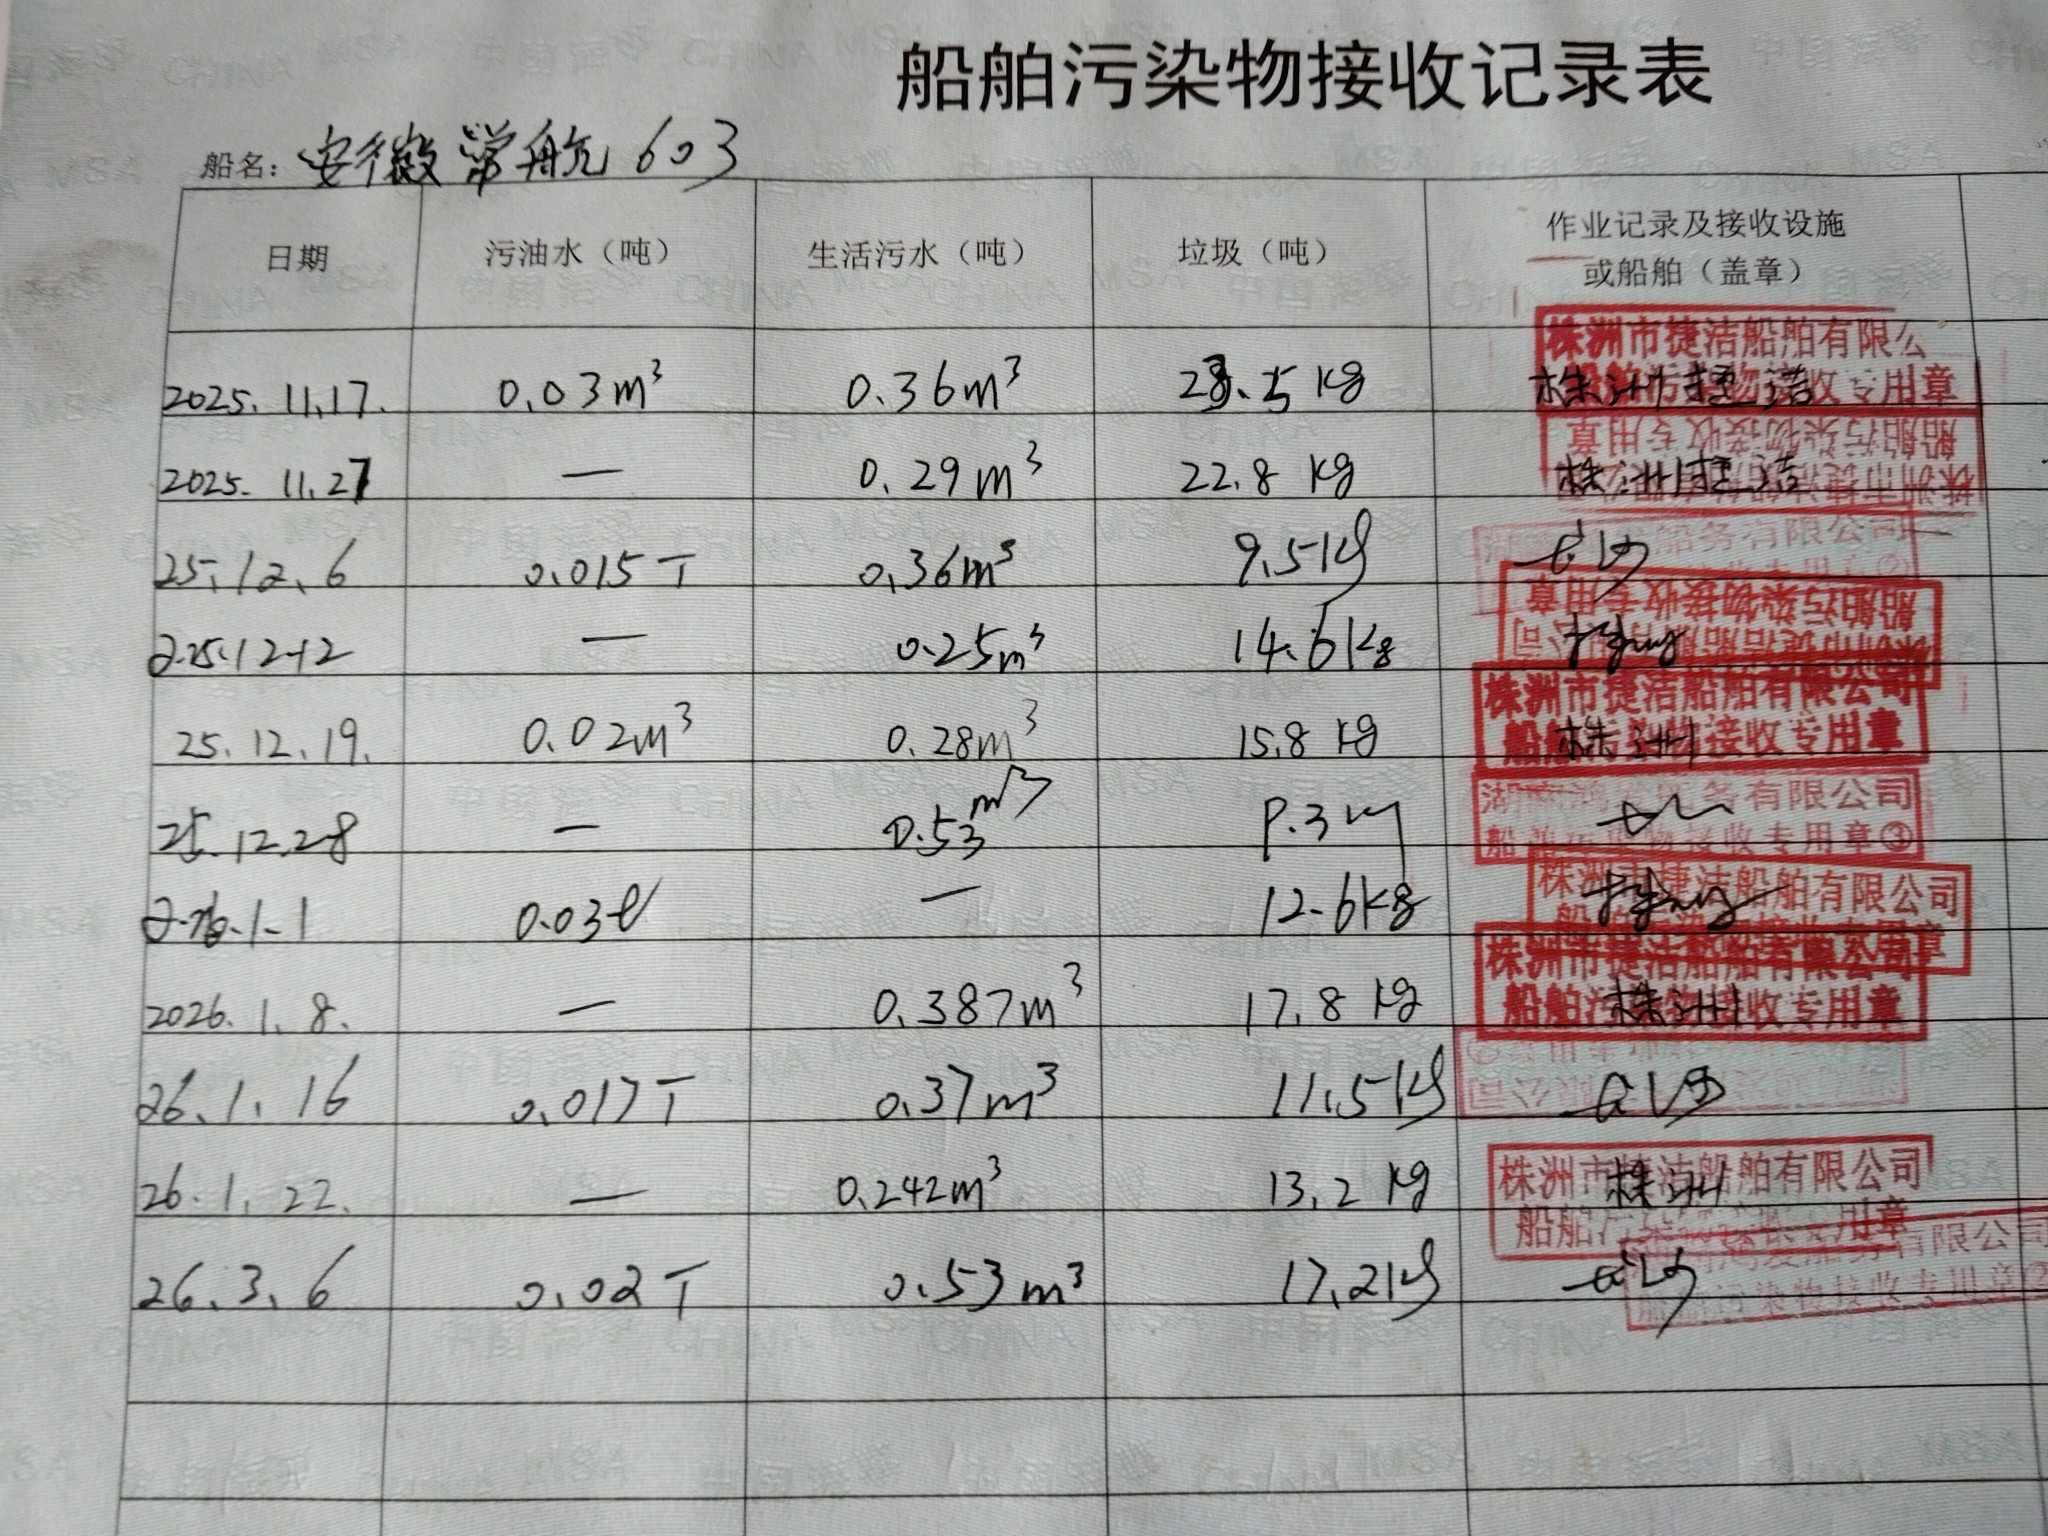 船舶污染物接收记录表
船名：安徽常航603
日期 污油水（吨） 生活污水（吨） 垃圾（吨） 作业记录及接收设施
或船舶（盖章）
株洲市捷洁船舶有限公
2025.11.17. 0.03m³ 0.36m³ .5kg 株洲捷洁 收专用章
船舶污染物接收专用章
2025.11.27 — 0.29m³ 22.8kg 株洲捷洁
船务有限公司
25.12.6 0.015T 0.36m³ 9.5kg 长沙
船舶污染物接收专用章
225.12.12 — 0.25m³ 14.6kg
株洲市捷洁船舶有限公司
25.12.19. 0.02m³ 0.28m³ 15.8kg 株洲 接收专用章
务有限公司
25.12.28 — 0.53m³ 接收专用章③
株洲市捷洁船舶有限公司
1.1 0.03t — 12.6kg
株洲市捷洁船舶有限公司
2026.1.8. — 0.387m³ 17.8kg 船舶 株洲 收专用章
26.1.16 0.017T 0.37m³ 11.5kg
公司
株洲市捷洁船舶有限公司
26.1.22. — 0.242m³ 13.2kg 株洲
船舶污染物接收专用章
船务有限公司
26.3.6 0.02T 0.53m³ 17.2kg 长沙
船舶污染物接收专用章②